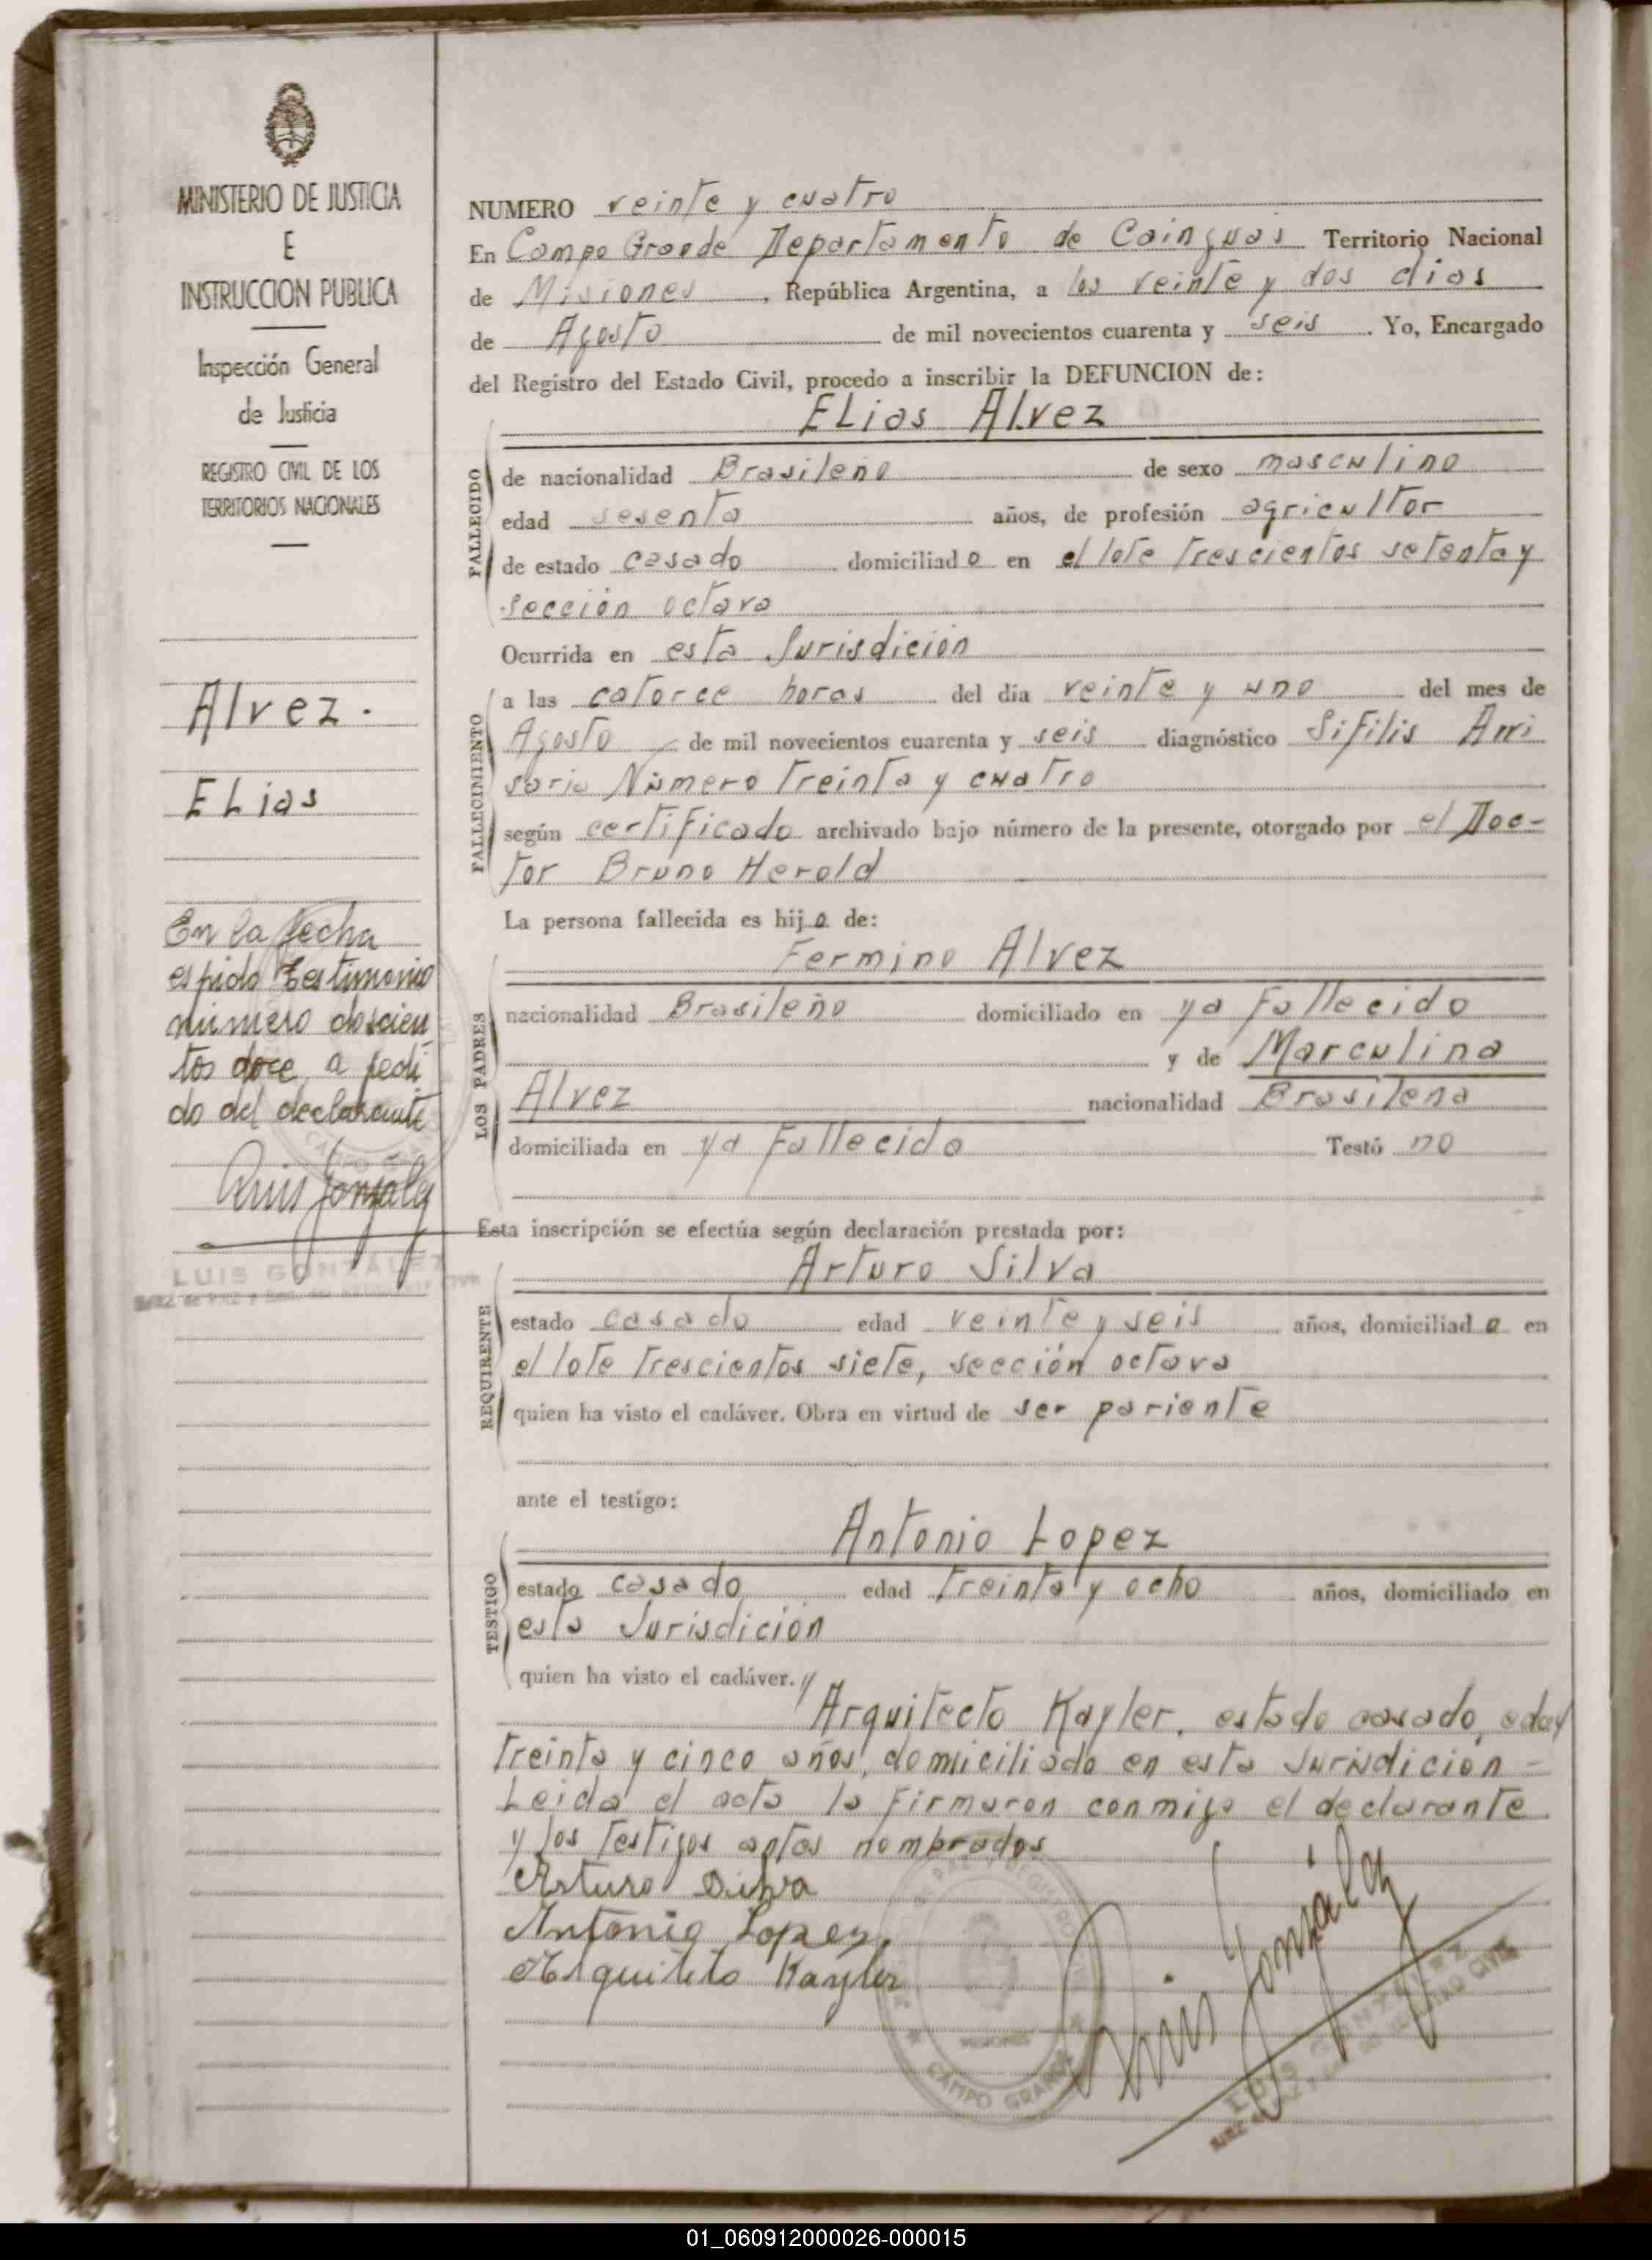 MINISTERIO DE JUSTICIA
E
INSTRUCCION PUBLICA
Inspección General
de Justicia
REGISTRO CIVIL DE LOS
TERRITORIOS NACIONALES
Alvez.
ELias
En la fecha
espido testimonio
número doscien
tos doce a pedi
do del declarante
Luis González
LUIS GONZALEZ
NUMERO veinte y cuatro
En Campo Grande Departamento de Cainguás Territorio Nacional
de Misiones, República Argentina, a los veinte y dos dias
de Agosto de mil novecientos cuarenta y seis. Yo, Encargado
del Registro del Estado Civil, procedo a inscribir la DEFUNCION de:
ELias Alvez
FALLECIDO
de nacionalidad Brasileño de sexo masculino
edad sesenta años, de profesión agricultor
de estado casado domiciliado en el lote trescientos setenta y
sección octava
Ocurrida en esta Jurisdición
FALLECIMIENTO
a las catorce horas del día veinte y uno del mes de
Agosto de mil novecientos cuarenta y seis diagnóstico Sifilis
Número treinta y cuatro
según certificado archivado bajo número de la presente, otorgado por el Doc-
tor Bruno Herold
La persona fallecida es hijo de:
Fermino Alvez
LOS PADRES
nacionalidad Brasileño domiciliado en ya fallecido
y de Marculina
Alvez nacionalidad Brasilena
domiciliada en ya fallecido Testó no
Esta inscripción se efectúa según declaración prestada por:
Arturo Silva
REQUIRENTE
estado casado edad veinte y seis años, domiciliado en
el lote trescientos siete, sección octava
quien ha visto el cadáver. Obra en virtud de ser pariente
ante el testigo:
Antonio Lopez
TESTIGO
estado casado edad treinta y ocho años, domiciliado en
esta Jurisdición
quien ha visto el cadáver. y
Arquitecto Kayler, estado casado, edad
treinta y cinco años, domiciliado en esta Jurisdición -
Leida el acta la firmaron conmigo el declarante
y los testigos antes nombrados
Arturo Silva
Antonio Lopez
Arquiteto Kayler
Luis González
CAMPO GRANDE
LUIS GONZALEZ
01_060912000026-000015